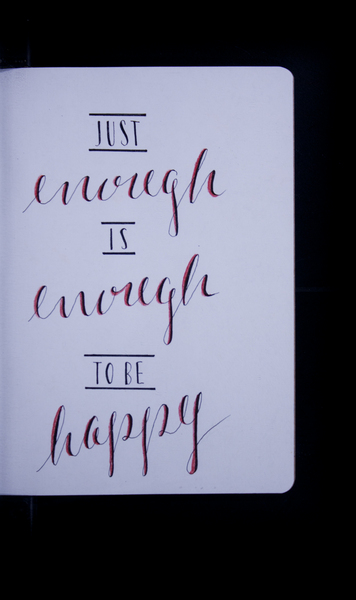 JUST
enough
IS
enough
TO BE
happy